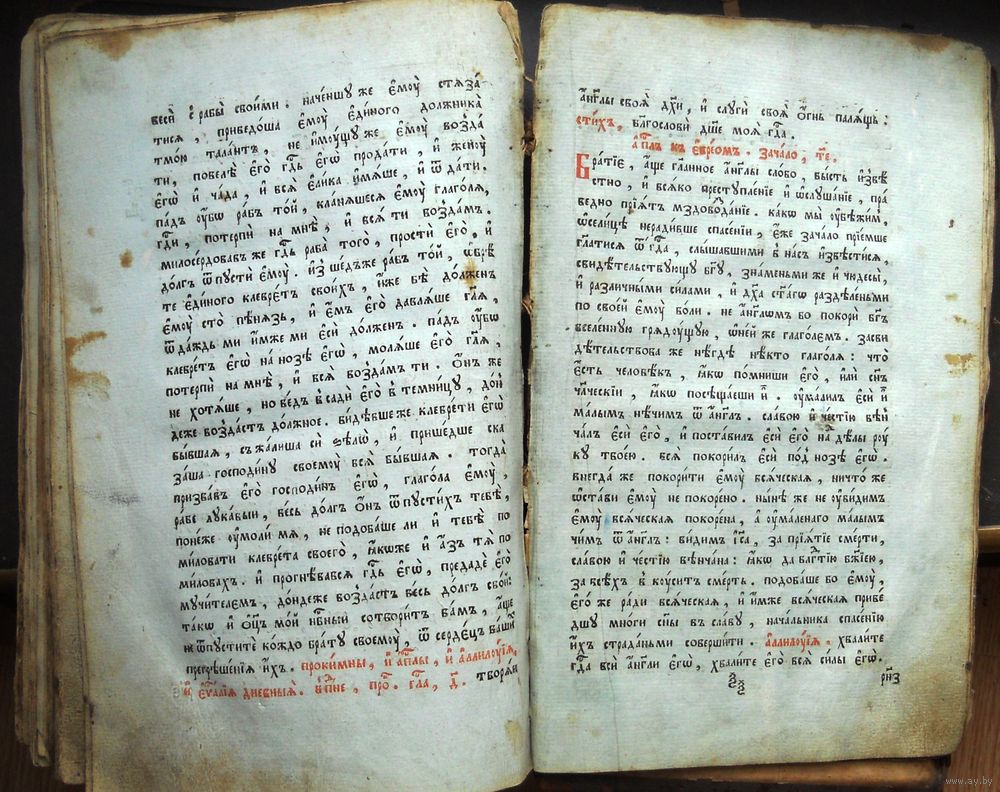 весѝ с̾ рабы̀ свои́ми . наче́ншꙋ же є҆моу̀ стѧза́
тисѧ , приведо́ша є҆моу̀ є҆ди́ного должника̀
тмо́ю тала́нтъ , не и҆моу́щꙋ же є҆моу̀ возда́
ти , повелѣ̀ є҆го̀ гдⷭ҇ь є҆гѡ̀ прода́ти , и҆ женоу̀
є҆гѡ̀ и҆ ча́да , и҆ всѧ̀ є҆ли́ка и҆мѧ́ше , и҆ ѿда́ти .
па́дъ оу҆́бѡ ра́бъ то́й , кла́нѧшесѧ є҆моу̀ глаго́лѧ ,
гдⷭ҇и , потерпѝ на мнѣ̀ , и҆ всѧ̀ ти возда́мъ .
милосе́рдовавъ же гдⷭ҇ь раба̀ того̀ , простѝ є҆го̀ , и҆
до́лгъ ѿпꙋстѝ є҆моу̀ . и҆зше́дъ же ра́бъ то́й , ѡ҆брѣ́
те є҆ди́ного клевре́тъ свои́хъ , и҆́же бѣ̀ до́лженъ
є҆моу̀ сто̀ пѣ́нѧзь , и҆ є҆́мъ є҆го̀ давлѧ́ше гл҃ѧ ,
ѿда́ждь ми и҆́мже ми є҆сѝ до́лженъ . па́дъ оу҆́бѡ
клевре́тъ є҆гѡ̀ на но́зѣ є҆гѡ̀ , молѧ́ше є҆го̀ гл҃ѧ ,
потерпѝ на мнѣ̀ , и҆ всѧ̀ возда́мъ ти . ѻ҆́нъ же
не хотѧ́ше , но ве́дъ всадѝ є҆го̀ в̾ темни́цꙋ , до́н
деже возда́стъ до́лжное . ви́дѣвше же клевре́ти є҆гѡ̀
бы́вшаѧ , съжа́лиша сѝ ѕѣлѡ̀ , и҆ прише́дше ска
за́ша господи́нꙋ своемоу̀ всѧ̀ бы́вшаѧ . тогда̀
призва́въ є҆го̀ господи́нъ є҆гѡ̀ , глаго́ла є҆моу̀ ,
ра́бе лꙋка́выи , ве́сь до́лгъ ѻ҆́нъ ѿпꙋсти́хъ тебѣ̀ ,
поне́же оу҆моли́ мѧ , не подоба́ше ли и҆ тебѣ̀ по
ми́ловати клевре́та своего̀ , ꙗ҆́коже и҆ а҆́зъ тѧ̀ по
ми́ловахъ . и҆ прогнѣ́вавсѧ гдⷭ҇ь є҆гѡ̀ , предадѐ є҆го̀
мꙋчи́телемъ , до́ндеже возда́стъ ве́сь до́лгъ сво́и :
та́кѡ и҆ ѻ҆ц҃ъ мо́й нбⷭ҇ныи сотвори́тъ ва́мъ , а҆́ще
не ѿпꙋститѐ ко́ждо бра́тꙋ своемоу̀ , ѿ серде́цъ ва́шихъ
прегрѣше́нїѧ и҆́хъ . проки́мны , и҆ а҆пⷭ҇лы , и҆ а҆ллилоу́їѧ ,
и҆ є҆ѵⷢ҇лїѧ дне́вныѧ . в̾ пнⷣе , про́ . гла́ , д҃ . творѧ́и
а҆́гг҃лы своѧ̀ дх҃и , и҆ слꙋгѝ своѧ̀ ѻ҆́гнь палѧ́щь :
сти́хъ , бл҃гословѝ дш҃е моѧ̀ гдⷭ҇а .
а҆пⷭ҇лъ къ є҆вре́ѡмъ . зача́ло , т҃е .
Бра́тїе , а҆́ще гл҃анное а҆́гг҃лы сло́во , бы́сть и҆звѣ́
стно , и҆ всѧ́ко престꙋпле́нїе и҆ ѡ҆слꙋ́шанїе , пра́
ведно прїѧ́тъ мздовозда́нїе . ка́кѡ мы̀ оу҆бѣжи́мъ ,
ѡ҆ сели́цѣ неради́вше спасе́нїи , є҆́же зача́ло прїе́мше
гл҃атисѧ ѿ гдⷭ҇а , слы́шавшими в̾ на́съ и҆звѣсти́сѧ ,
свидѣ́тельствꙋющꙋ бг҃ꙋ , зна́меньми же и҆ чюдесы̀ ,
и҆ разли́чными си́лами , и҆ дх҃а ст҃а́гѡ раздѣле́ньми
по свое́й є҆моу̀ во́ли . не а҆́гг҃лѡмъ бо покорѝ бг҃ъ
вселе́ннꙋю грѧдоу́щꙋю , ѡ҆ не́й же глаго́лемъ . засви
дѣ́тельствова же нѣ́гдѣ нѣ́кто глаго́лѧ : что̀
є҆́сть человѣ́къ , ꙗ҆́кѡ по́мниши є҆го̀ , и҆лѝ сн҃ъ
чл҃ческїи , ꙗ҆́кѡ посѣща́еши и҆̀ . оу҆ма́лилъ є҆сѝ и҆̀
ма́лымъ нѣ́чимъ ѿ а҆́гг҃лъ . сла́вою и҆ че́стїю вѣн
ча́лъ є҆сѝ є҆го̀ , и҆ поста́вилъ є҆сѝ є҆го̀ на дѣ́лы роу
кꙋ̀ твоє́ю . всѧ̀ покори́лъ є҆сѝ под̾ но́зѣ є҆гѡ̀ .
внегда́ же покори́ти є҆моу̀ всѧ́ческаѧ , ничто́ же
ѡ҆ста́ви є҆моу̀ не покоре́но . ны́нѣ же не оу҆̀ ви́димъ
є҆моу̀ всѧ́ческаѧ покоре́на , а҆ оу҆ма́ленаго ма́лымъ
чи́мъ ѿ а҆́гг҃лъ : ви́димъ і҆и҃са , за прїѧ́тїе сме́рти ,
сла́вою и҆ че́стїю вѣнча́на : ꙗ҆́кѡ да бл҃года́тїю бж҃їею ,
за всѣ́хъ вкоу́ситъ сме́рть . подоба́ше бо є҆моу̀ ,
є҆го́ же ра́ди всѧ́ческаѧ , и҆ и҆́мже всѧ́ческаѧ приве́
дшꙋ мно́ги сн҃ы в̾ сла́вꙋ , нача́льника спасе́нїю
и҆́хъ страда́ньми соверши́ти . а҆ллилоу́їѧ . хвали́те
гдⷭ҇а всѝ а҆́гг҃ли є҆гѡ̀ , хвали́те є҆го̀ всѧ̀ си́лы є҆гѡ̀ .
рн҃з
www.ay.by